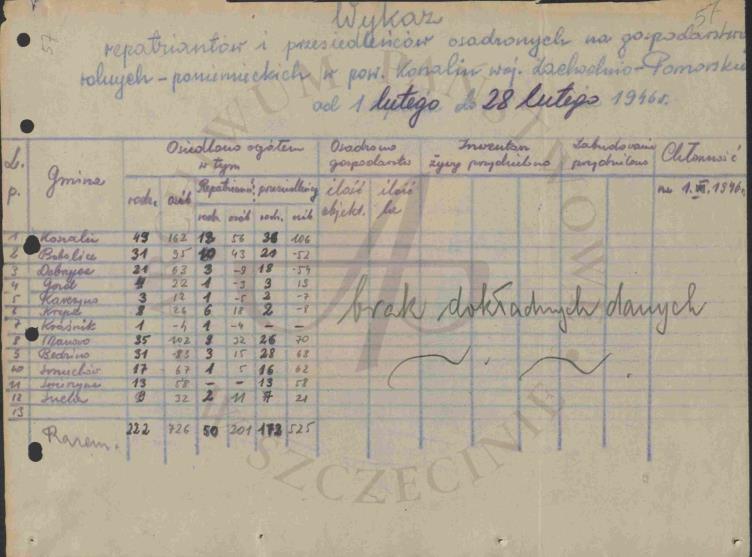 57
57
Wykaz
repatriantów i przesiedleńców osadzonych na gospodarstwa
rolnych - poniemieckich w pow. Koszalin woj. Zachodnio-Pomorskie
od 1 lutego do 28 lutego 1946 r.
L. p. Gmina Osiedlono ogółem w tym Osadzono gospodarstw Inwentarz żywy przydzielono Zabudowania przydzielono Chłonność
rodz. osób Repatrianci przesiedleńcy ilość objekt. ilość ha na 1. III. 1946 r.
rodz. osób rodz. osób
1 Koszalin 49 162 13 56 36 106
2 Bobolice 31 95 10 43 21 -52
3 Dobrzyca 21 63 3 -9 18 -54
4 22 1 -3 3 19
5 3 12 1 -5 2 -7
6 8 26 6 18 2 -8
7 Kraśnik 1 -4 1 -4 - -
8 Manowo 35 102 9 32 26 70
9 Będzino 31 83 3 15 28 68
10 17 67 1 5 16 62
11 13 58 - - 13 58
12 9 32 2 11 7 21
13
Razem. 222 726 50 201 172 525
brak dokładnych danych
ARCHIWUM PAŃSTWOWE W SZCZECINIE